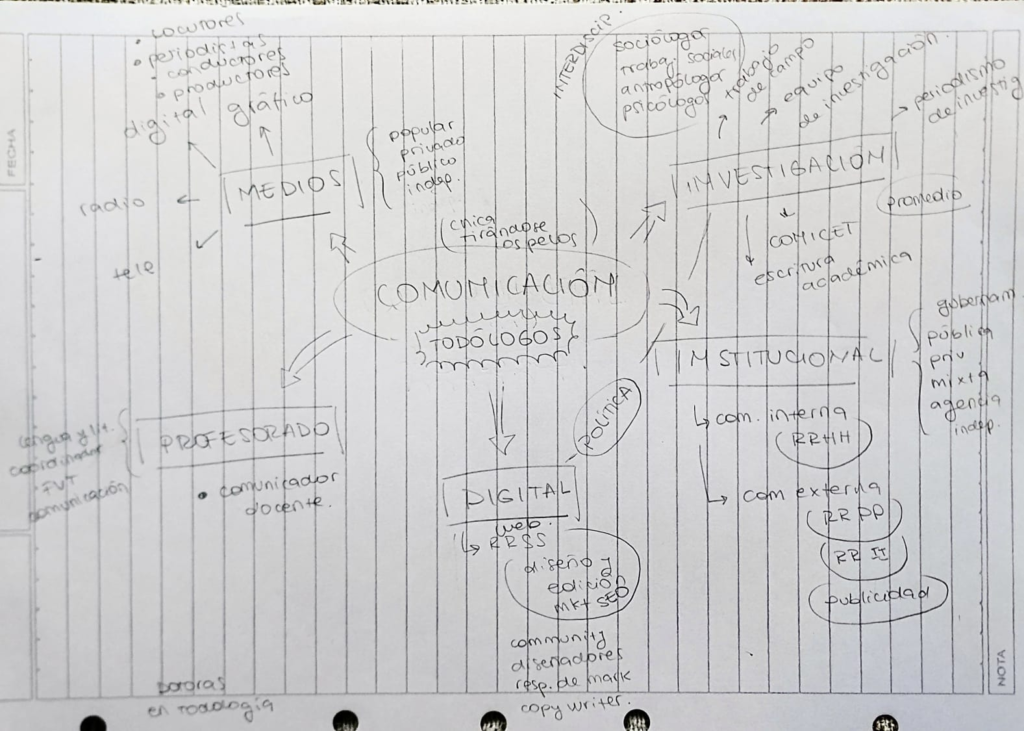 • locutores
• periodistas
• conductores
• productores
digital
gráfico
radio
tele
MEDIOS
popular
privado
público
indep.
INTERDISCIP.
sociólogos
trabaj sociales
antropólogos
psicólogos
trabajo
de campo
equipo
de investigación.
periodismo
de investig
INVESTIGACIÓN
promedio
CONICET
escritura
académica
(chica
tirándose
os pelos)
COMUNICACIÓN
TODÓLOGOS
INSTITUCIONAL
gobernam
pública
priv
mixta
agencia
indep.
com. interna
RRHH
com externa
RR PP
RR II
publicidad
POLÍTICA
PROFESORADO
Lengua y Lit.
coordinador
comunicación
• comunicador
docente.
DIGITAL
web.
RRSS
diseño y
edición
mkt SEO
community
diseñadores
resp. de mark
copy writer.
en Todología
FECHA
NOTA